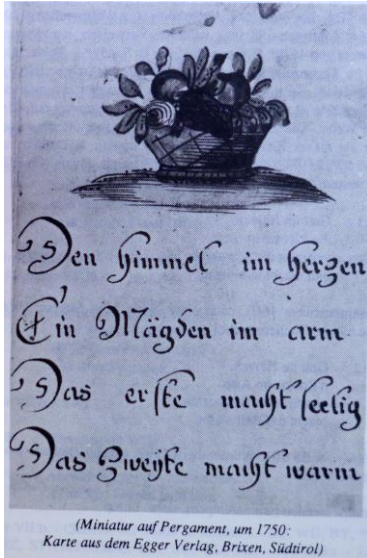 Den himmel im herzen
Ein Mägden im arm
Das erste macht seelig
Das Zweyte macht warm
(Miniatur auf Pergament, um 1750:
Karte aus dem Egger Verlag, Brixen, Südtirol)